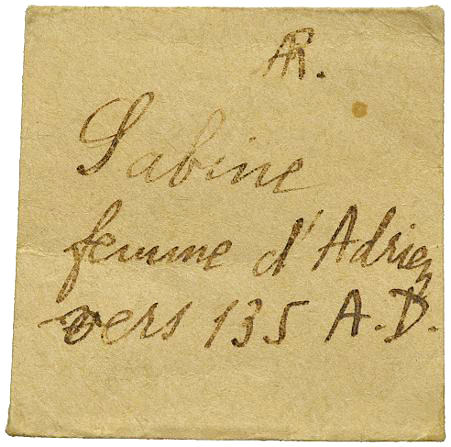 AR.
Sabine
femme d'Adrien
vers 135 A.D.